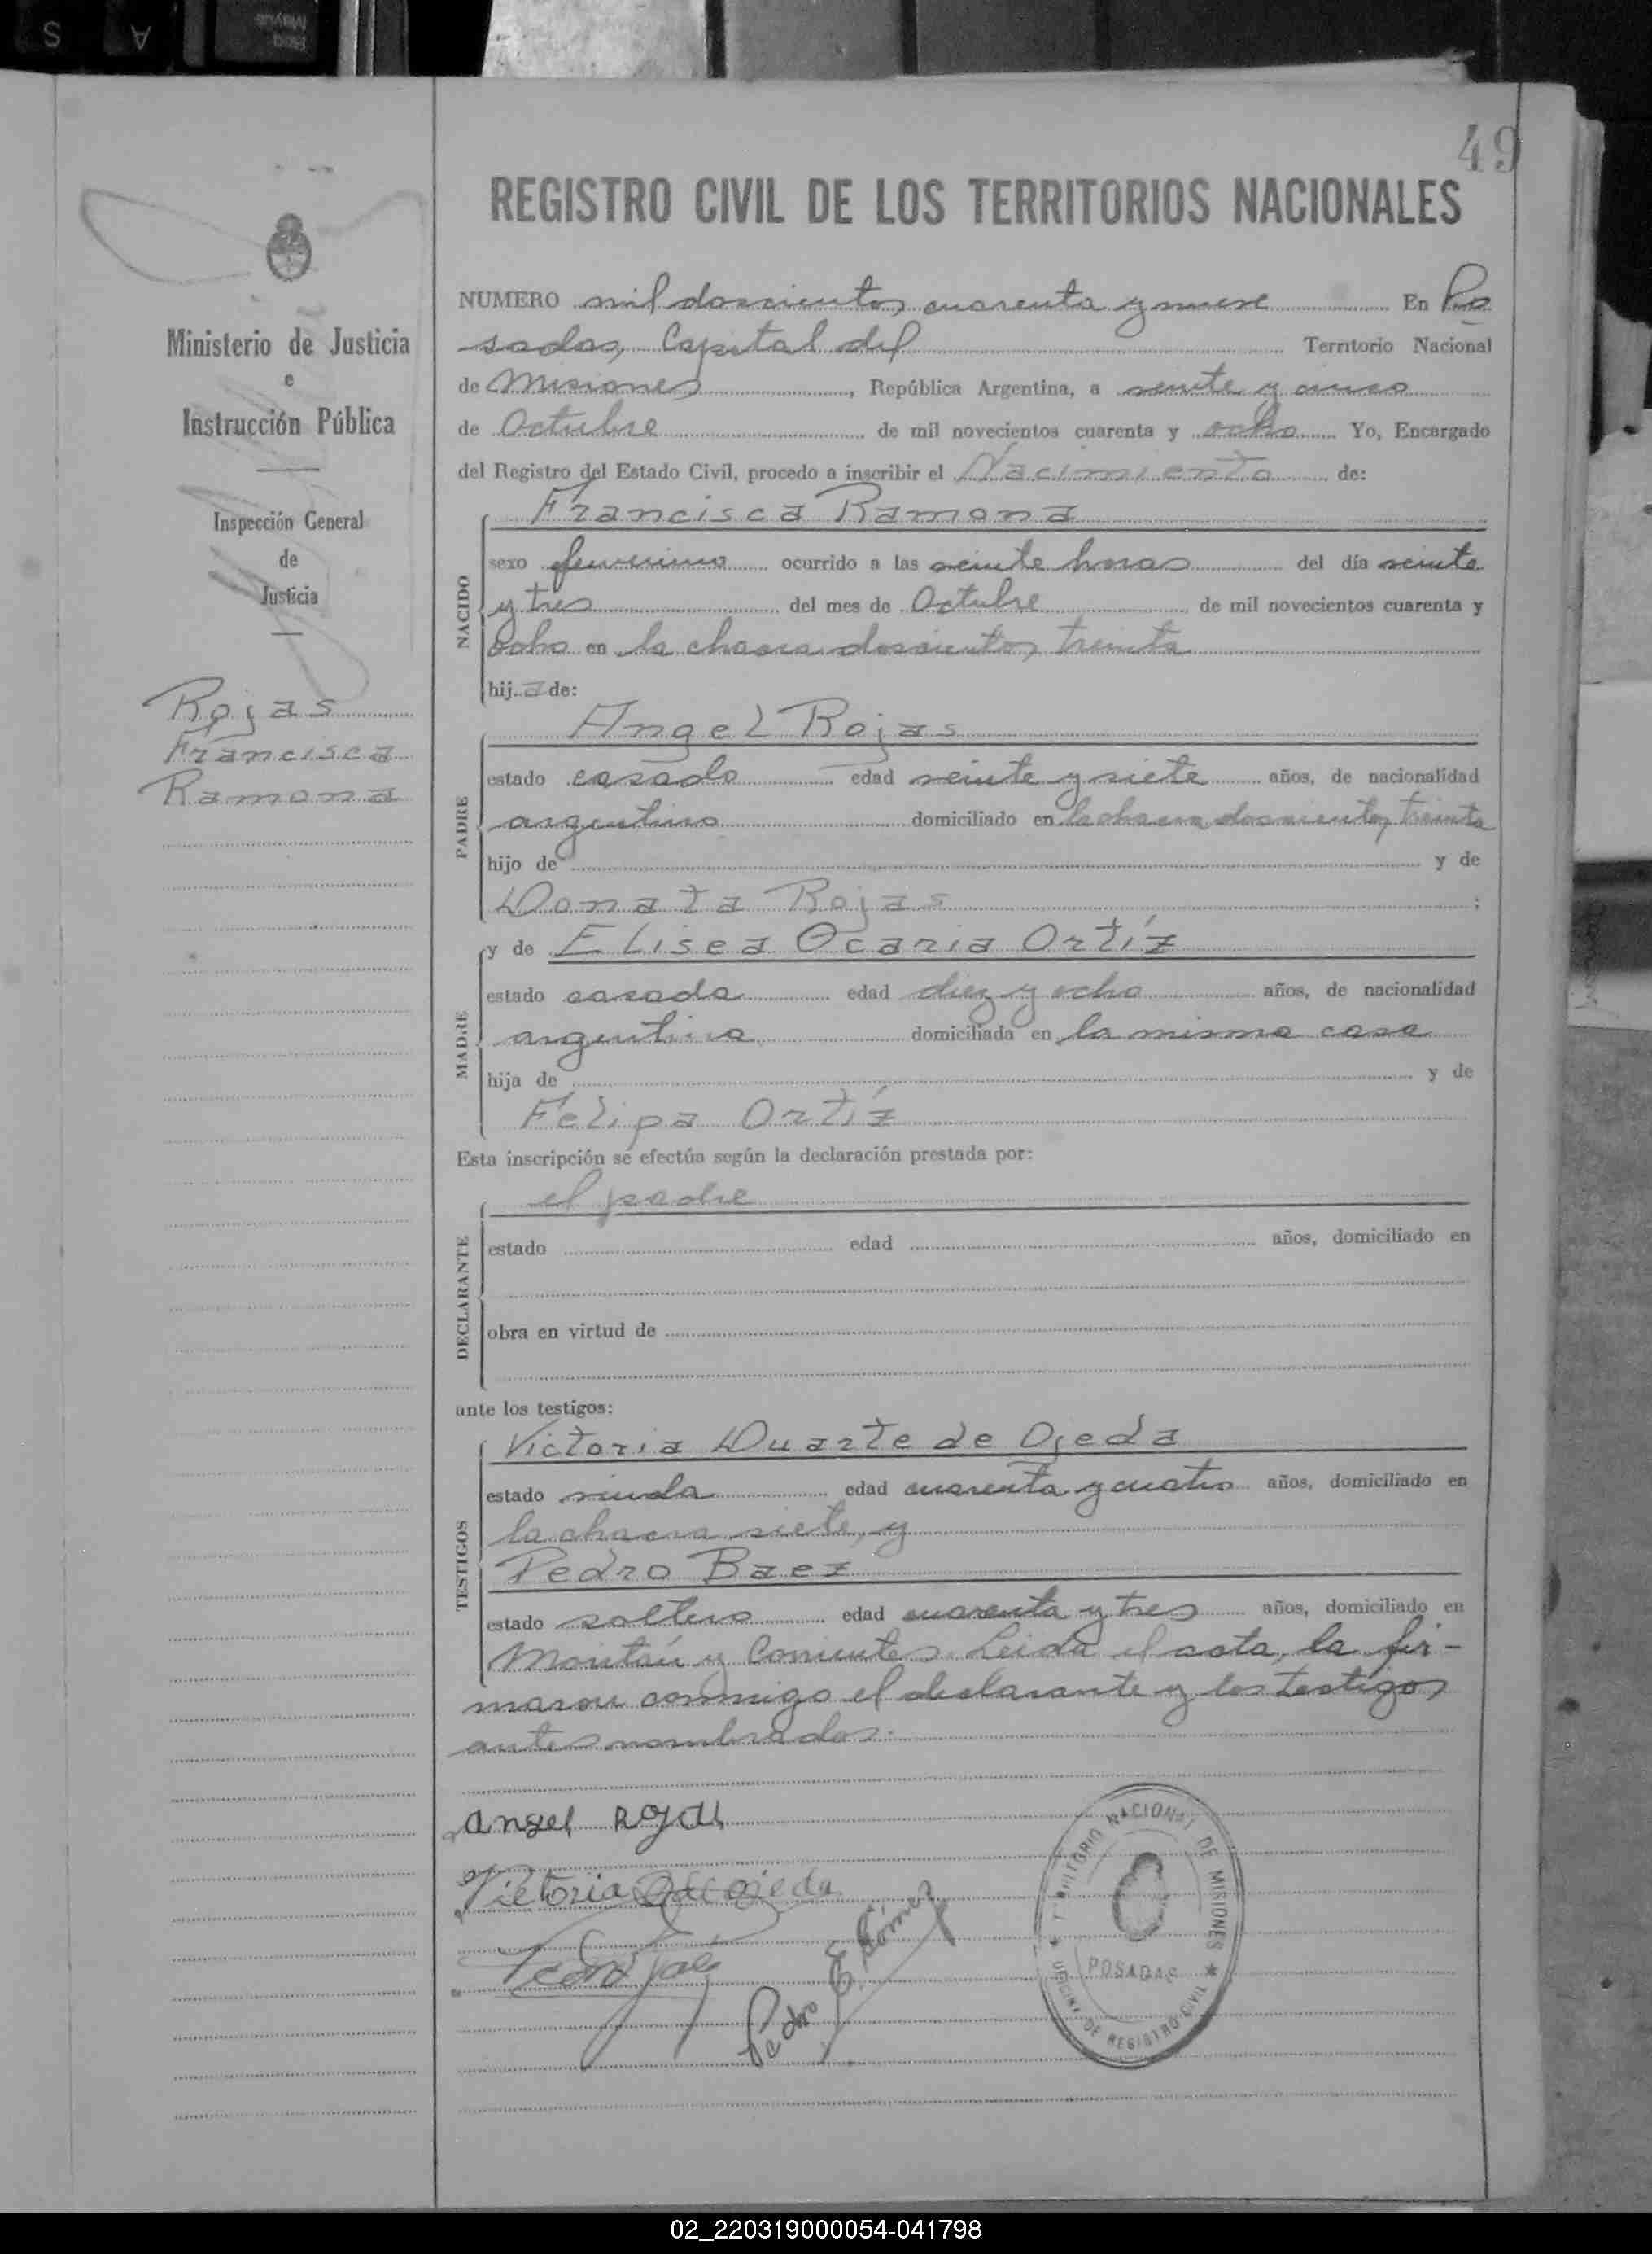 49
REGISTRO CIVIL DE LOS TERRITORIOS NACIONALES
Ministerio de Justicia
e
Instrucción Pública
Inspección General
de
Justicia
Rojas
Francisca
Ramona
NUMERO mil doscientos cuarenta y nueve En Po
sadas, Capital del Territorio Nacional
de Misiones, República Argentina, a veinte y cinco
de Octubre de mil novecientos cuarenta y ocho Yo, Encargado
del Registro del Estado Civil, procedo a inscribir el Nacimiento de:
NACIDO
Francisca Ramona
sexo femenino ocurrido a las veinte horas del día veinte
y tres del mes de Octubre de mil novecientos cuarenta y
ocho en la chacra doscientos treinta
hija de:
PADRE
Angel Rojas
estado casado edad veinte y siete años, de nacionalidad
argentino domiciliado en la chacra doscientos treinta
hijo de y de
Donata Rojas ;
MADRE
y de Elisea Ocaria Ortíz
estado casada edad diez y ocho años, de nacionalidad
argentina domiciliada en la misma casa
hija de y de
Felipa Ortíz
Esta inscripción se efectúa según la declaración prestada por:
DECLARANTE
el padre
estado edad años, domiciliado en
obra en virtud de
ante los testigos:
TESTIGOS
Victoria Duarte de Ojeda
estado viuda edad cuarenta y cuatro años, domiciliado en
la chacra siete, y
Pedro Baez
estado soltero edad cuarenta y tres años, domiciliado en
Maritán y Corrientes. Leida el acta, la fir-
maron conmigo el declarante y los testigos
antes nombrados.
angel Rojas
Victoria D de ojeda
Pedro E. Gómez
TERRITORIO NACIONAL DE MISIONES
POSADAS
OFICINA DE REGISTRO CIVIL
02_220319000054-041798